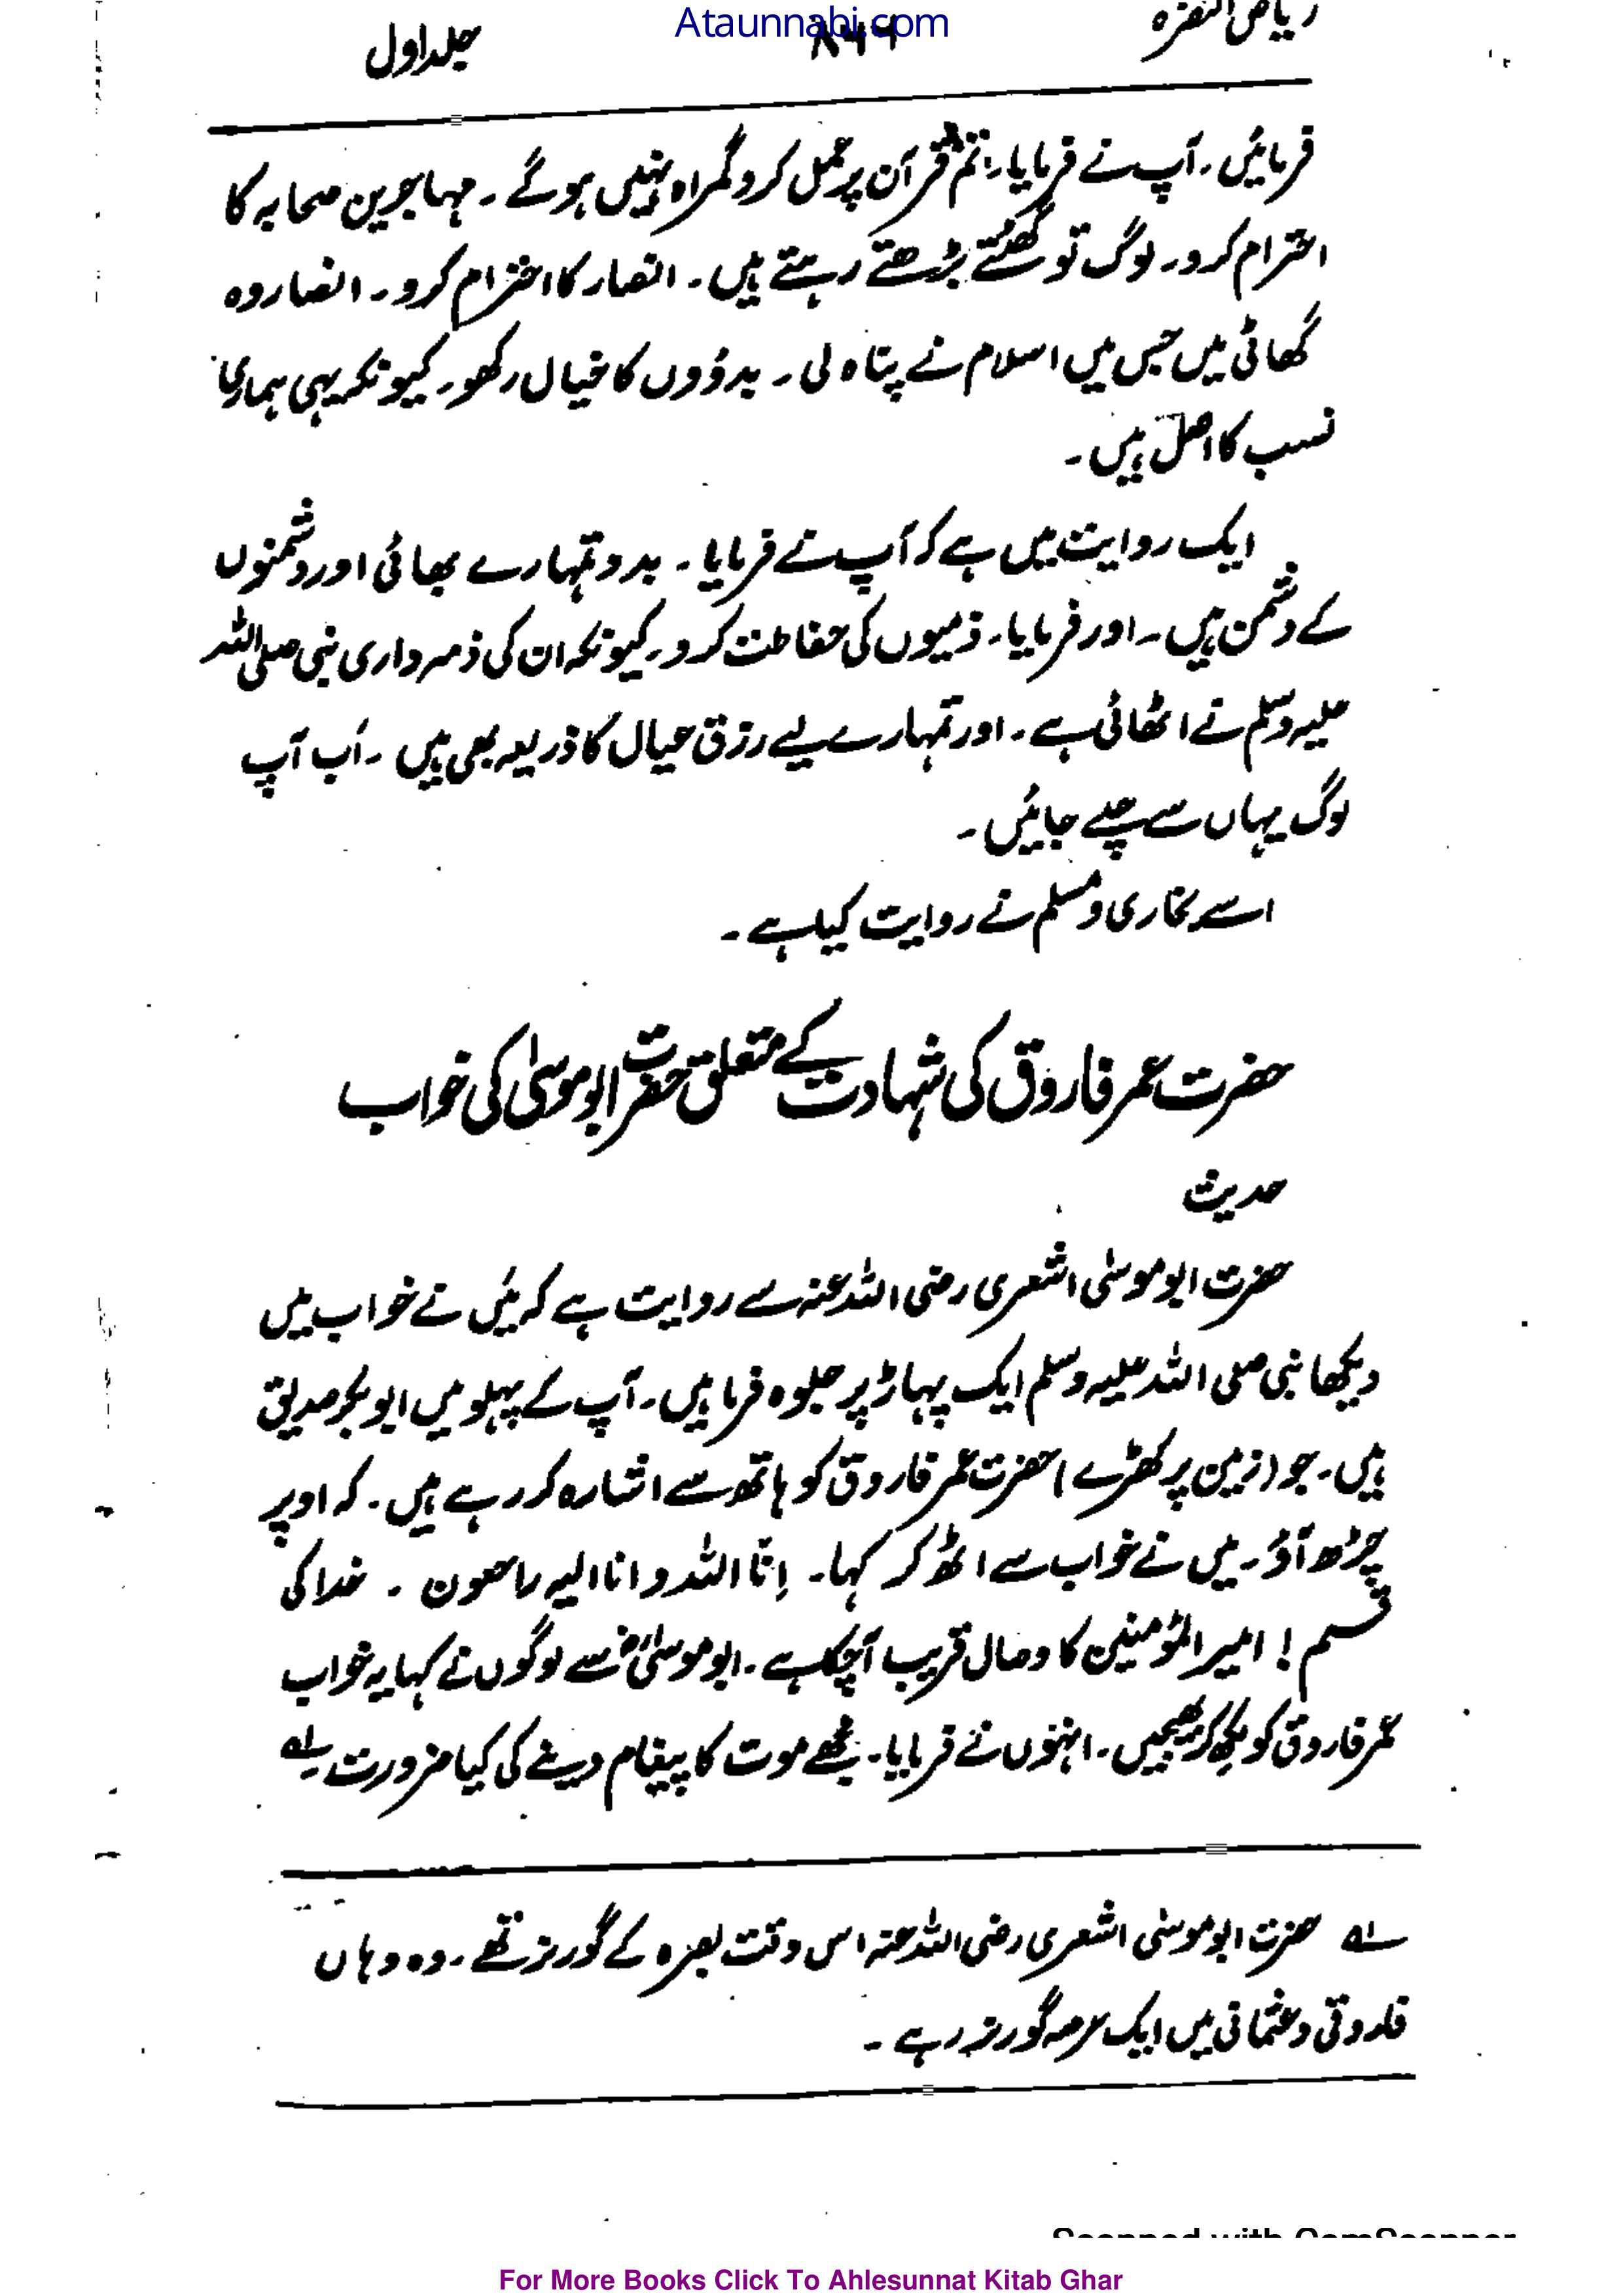 Ataunnabi.com
ریاض النضرہ ۸۶۹ جلد اول
فرمائیں۔ آپ نے فرمایا۔ تم قرآن پر عمل کرو گمراہ نہیں ہو گے۔ مہاجرین صحابہ کا
احترام کرو۔ لوگ تو گھٹتے بڑھتے رہتے ہیں۔ انصار کا احترام کرو۔ انصار وہ
گھاٹی ہیں جس میں اسلام نے پناہ لی۔ بدؤوں کا خیال رکھو۔ کیونکہ یہی ہماری
نسب کا اصل ہیں۔
ایک روایت میں ہے کہ آپ نے فرمایا۔ بدو تمہارے بھائی اور دشمنوں
کے دشمن ہیں۔ اور فرمایا۔ ذمیوں کی حفاظت کرو۔ کیونکہ ان کی ذمہ داری نبی صلی اللہ
علیہ وسلم نے اٹھائی ہے۔ اور تمہارے لیے رزق عیال کا ذریعہ بھی ہیں۔ اَب آپ
لوگ یہاں سے چلے جائیں۔
اسے بخاری و مسلم نے روایت کیا ہے۔
حضرت عمر فاروق کی شہادت کے متعلق حضرت ابو موسیٰ کی خواب
حدیث
حضرت ابو موسیٰ اشعری رضی اللہ عنہ سے روایت ہے کہ میَں نے خواب میں
دیکھا نبی صلی اللہ علیہ وسلم ایک پہاڑ پر جلوہ فرما ہیں۔ آپ کے پہلو میں ابو بکر صدیق
ہیں۔ جو (زمین پر کھڑے) حضرت عمر فاروق کو ہاتھ سے اشارہ کر رہے ہیں۔ کہ اوپر
چڑھ آؤ۔ میں نے خواب سے اٹھ کر کہا۔ اِنّا اللہ و انا الیہ راجعون ۔ خدا کی
قسم! امیر المؤمنین کا وصال قریب آچکا ہے۔ ابو موسیٰؓ سے لوگوں نے کہا یہ خواب
عمر فاروق کو لکھ کر بھیجیں۔ انہوں نے فرمایا۔ مجھے موت کا پیغام دینے کی کیا ضرورت ۱؎
۱؎ حضرت ابو موسیٰ اشعری رضی اللہ عنہ اس وقت بصرہ کے گورنر تھے۔ وہ وہاں
فاروقی و عثمانی میں ایک عرصہ گورنر رہے۔
Scanned with CamScanner
For More Books Click To Ahlesunnat Kitab Ghar